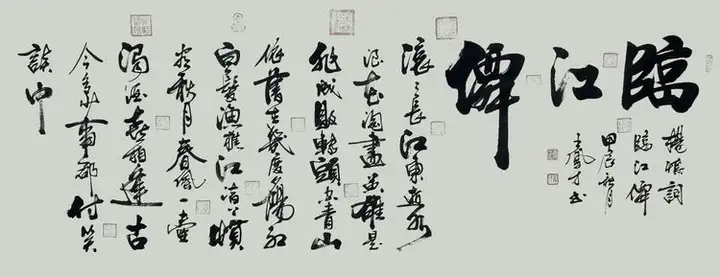 臨江僊
楊慎詞
臨江僊
甲辰秋月
王鳳才书
滚〻長江東逝水
浪花淘盡英雄是
非成敗轉頭空青山
依舊在幾度夕陽紅
白髮漁樵江渚上慣
看秋月春風一壺
濁酒喜相逢古
今多少事都付笑
談中